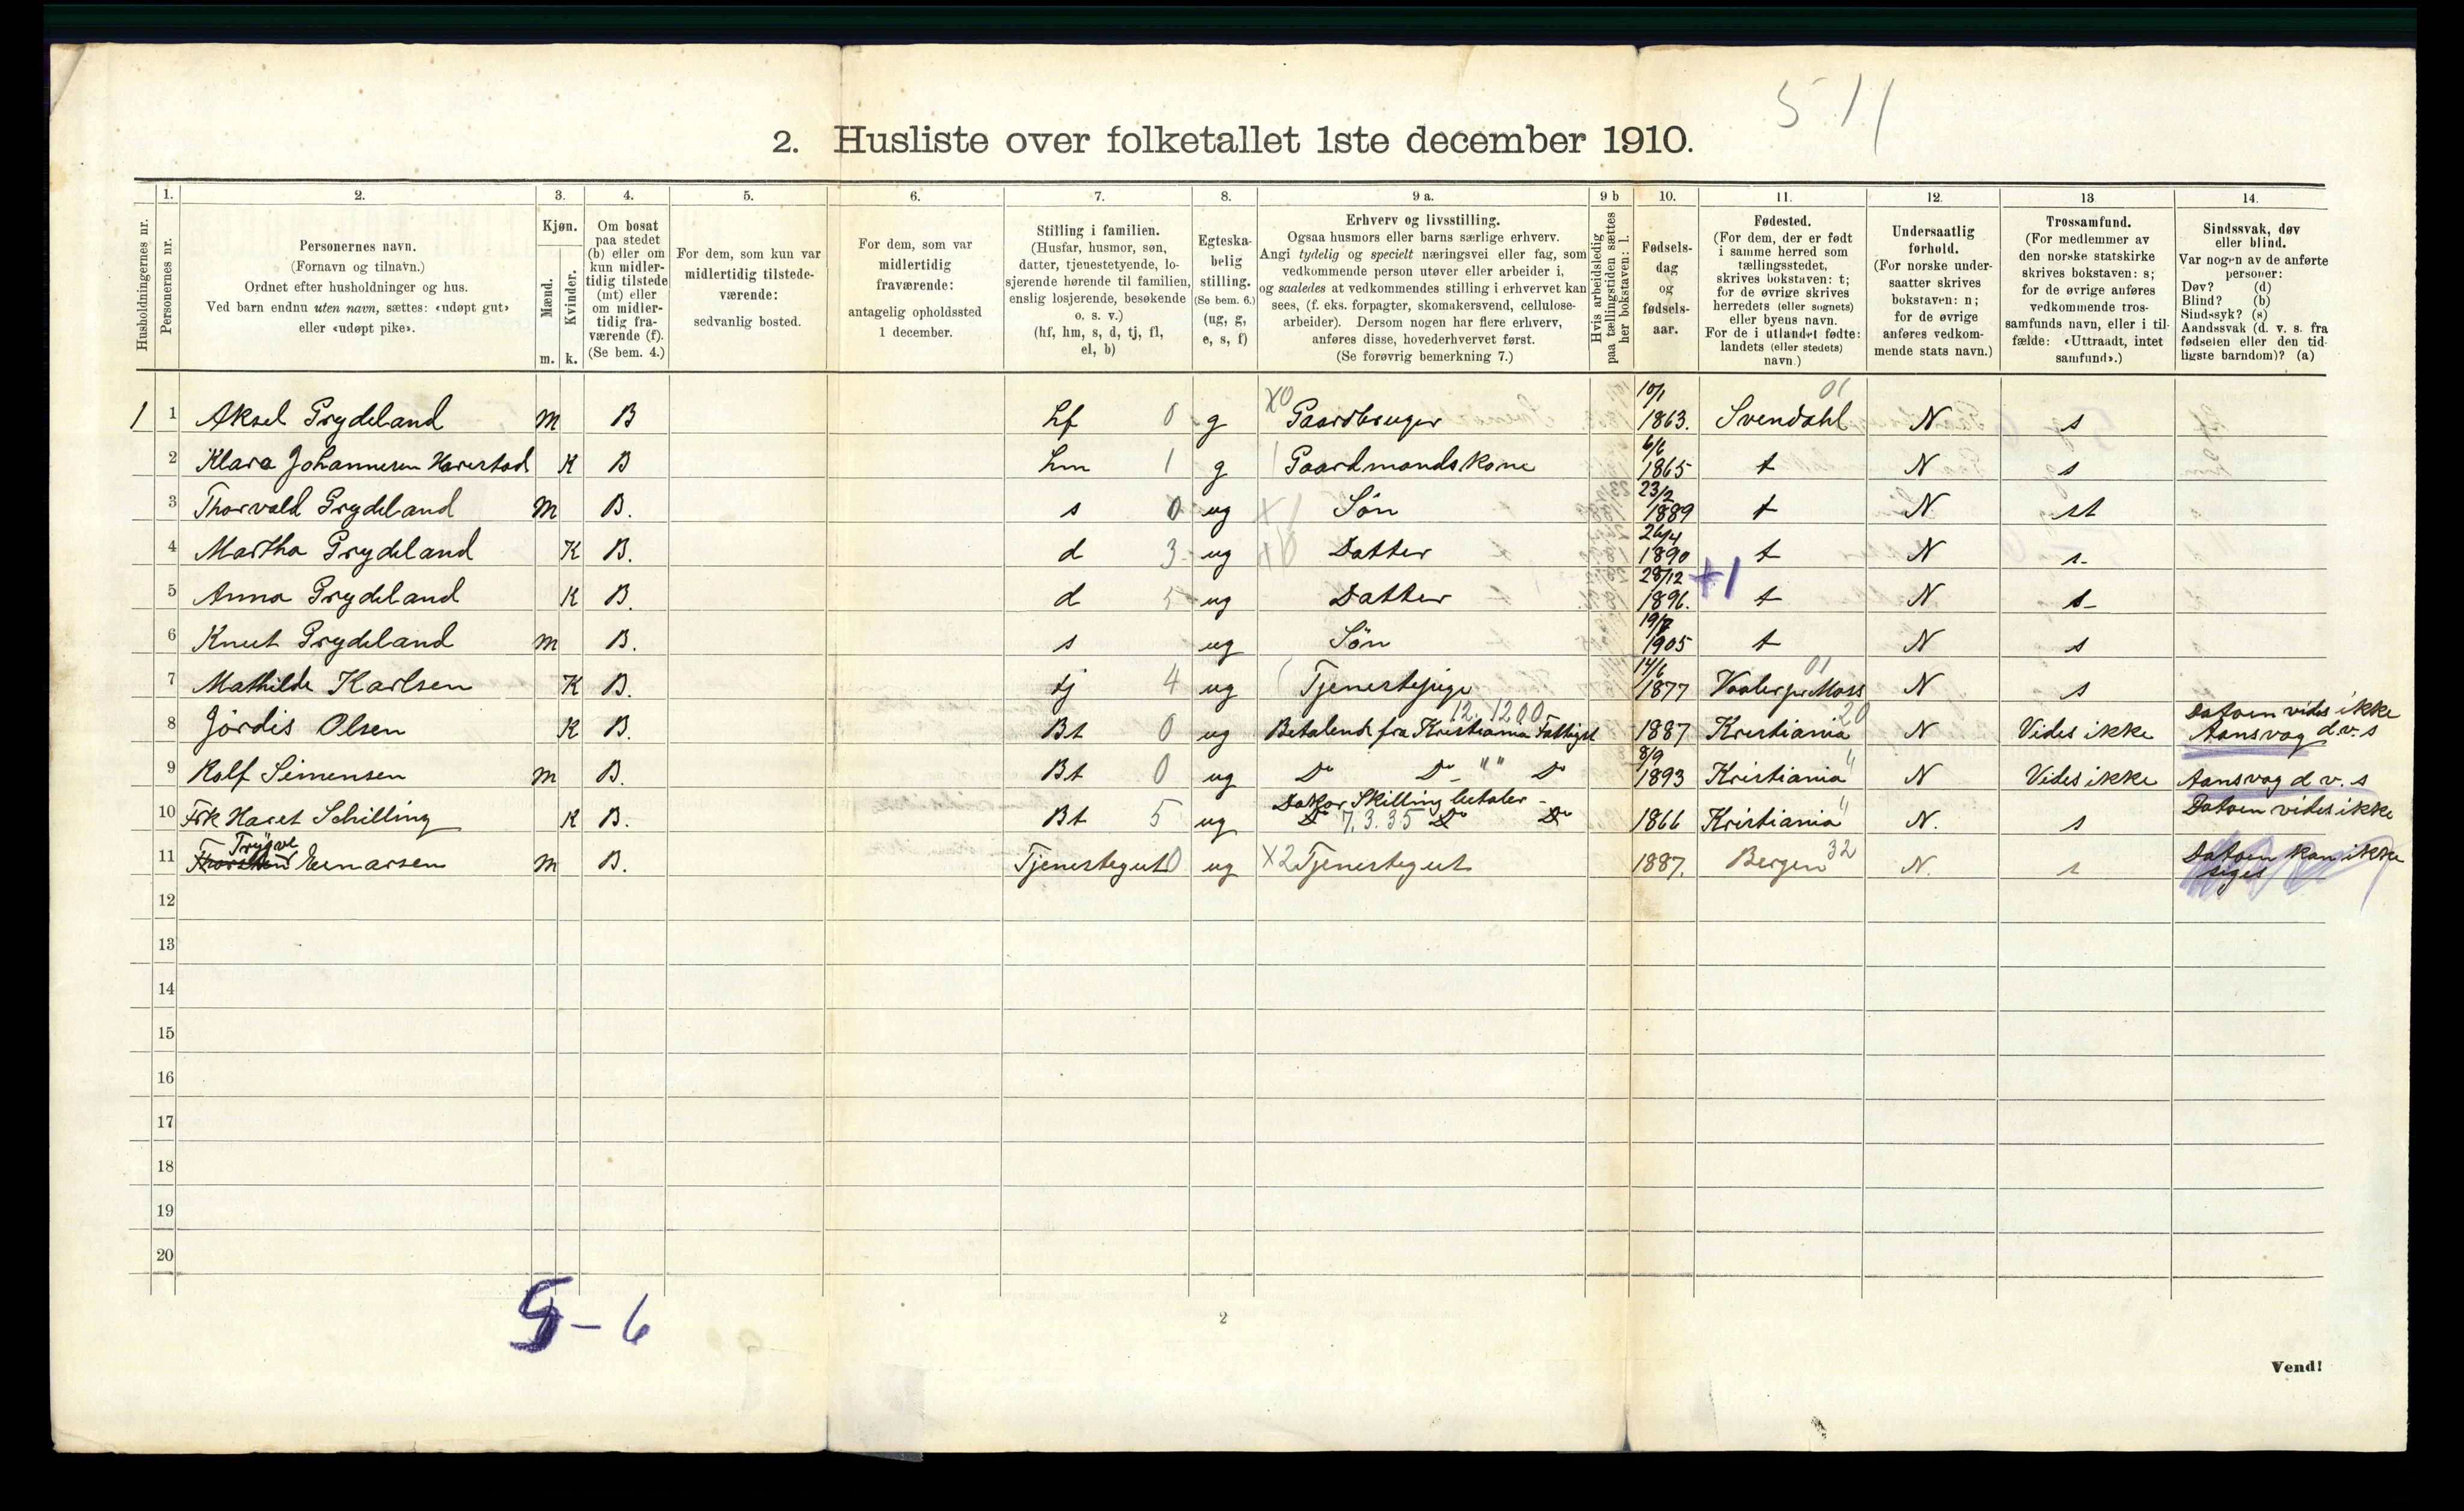 511
2. Husliste over folketallet 1ste december 1910.
Husholdningernes nr.
1.
Personernes nr.
2.
Personernes navn.
(Fornavn og tilnavn.)
Ordnet efter husholdninger og hus.
Ved barn endnu uten navn, sættes: «udøpt gut»
eller «udøpt pike».
3.
Kjøn.
Mænd.
Kvinder.
m. k.
4.
Om bosat
paa stedet
(b) eller om
kun midler-
tidig tilstede
(mt) eller
om midler-
tidig fra-
værende (f).
(Se bem. 4.)
5.
For dem, som kun var
midlertidig tilstede-
værende:
sedvanlig bosted.
6.
For dem, som var
midlertidig
fraværende:
antagelig opholdssted
1 december.
7.
Stilling i familien.
(Husfar, husmor, søn,
datter, tjenestetyende, lo-
sjerende hørende til familien,
enslig losjerende, besøkende
o. s. v.)
(hf, hm, s, d, tj, fl,
el, b)
8.
Egteska-
belig
stilling.
(Se bem. 6.)
(ug, g,
e, s, f)
9 a.
Erhverv og livsstilling.
Ogsaa husmors eller barns særlige erhverv.
Angi tydelig og specielt næringsvei eller fag, som
vedkommende person utøver eller arbeider i,
og saaledes at vedkommendes stilling i erhvervet kan
sees, (f. eks. forpagter, skomakersvend, cellulose-
arbeider). Dersom nogen har flere erhverv,
anføres disse, hovederhvervet først.
(Se forøvrig bemerkning 7.)
9 b
Hvis arbeidsledig
paa tællingstiden sættes
her bokstaven: l.
10.
Fødsels-
dag
og
fødsels-
aar.
11.
Fødested.
(For dem, der er født
i samme herred som
tællingsstedet,
skrives bokstaven: t;
for de øvrige skrives
herredets (eller sognets)
eller byens navn.
For de i utlandet fødte:
landets (eller stedets)
navn.)
12.
Undersaatlig
forhold.
(For norske under-
saatter skrives
bokstaven: n;
for de øvrige
anføres vedkom-
mende stats navn.)
13
Trossamfund.
(For medlemmer av
den norske statskirke
skrives bokstaven: s;
for de øvrige anføres
vedkommende tros-
samfunds navn, eller i til-
fælde: «Uttraadt, intet
samfund».)
14.
Sindssvak, døv
eller blind.
Var nogen av de anførte
personer:
Døv? (d)
Blind? (b)
Sindssyk? (s)
Aandssvak (d. v. s. fra
fødselen eller den tid-
ligste barndom)? (a)
1 1 Aksel Grydeland m B hf 0 g X0 Gaardbruger 10/1 1863. Svendahl 01 N s
2 Klara Johannesen Harestad K B hm 1 g Gaardmandskone 6/6 1865 t N s
3 Thorvald Grydeland m B. s 0 ug X1 Søn 23/2 1889 t N st
4 Martha Grydeland K B. d 3 ug X0 Datter 26/4 1890 t N s-
5 Anna Grydeland K B. d 5 ug Datter 28/12 1896. +1 t N s-
6 Knut Grydeland m B. s ug Søn 19/7 1905 t N s
7 Mathilde Karlsen K B. tj 4 ug Tjenestepige 14/6 1877 Vaaler pr Moss 01 N s
8 Jördis Olsen K B. Bt 0 ug Betalende fra Kristiania Fattigst 12.1200 1887 Kristiania 20 N Vides ikke Datoen vides ikke Aansvag d.v.s
9 Rolf Simensen m B. Bt 0 ug Do Do " Do 8/9 1893 Kristiania " N Vides ikke Aansvag d.v.s
10 Frk Haret Schilling K B. Bt 5 ug Doktor Skilling betaler - Do 7.3.35 Do Do 1866 Kristiania " N. s Datoen vides ikke
11 Trygve Einarsen m B. Tjenestegut 0 ug X2 Tjenestegut 1887. Bergen 32 N. s Datoen kan ikke siges
12
13
14
15
16
17
18
19
20
5-6
2
Vend!